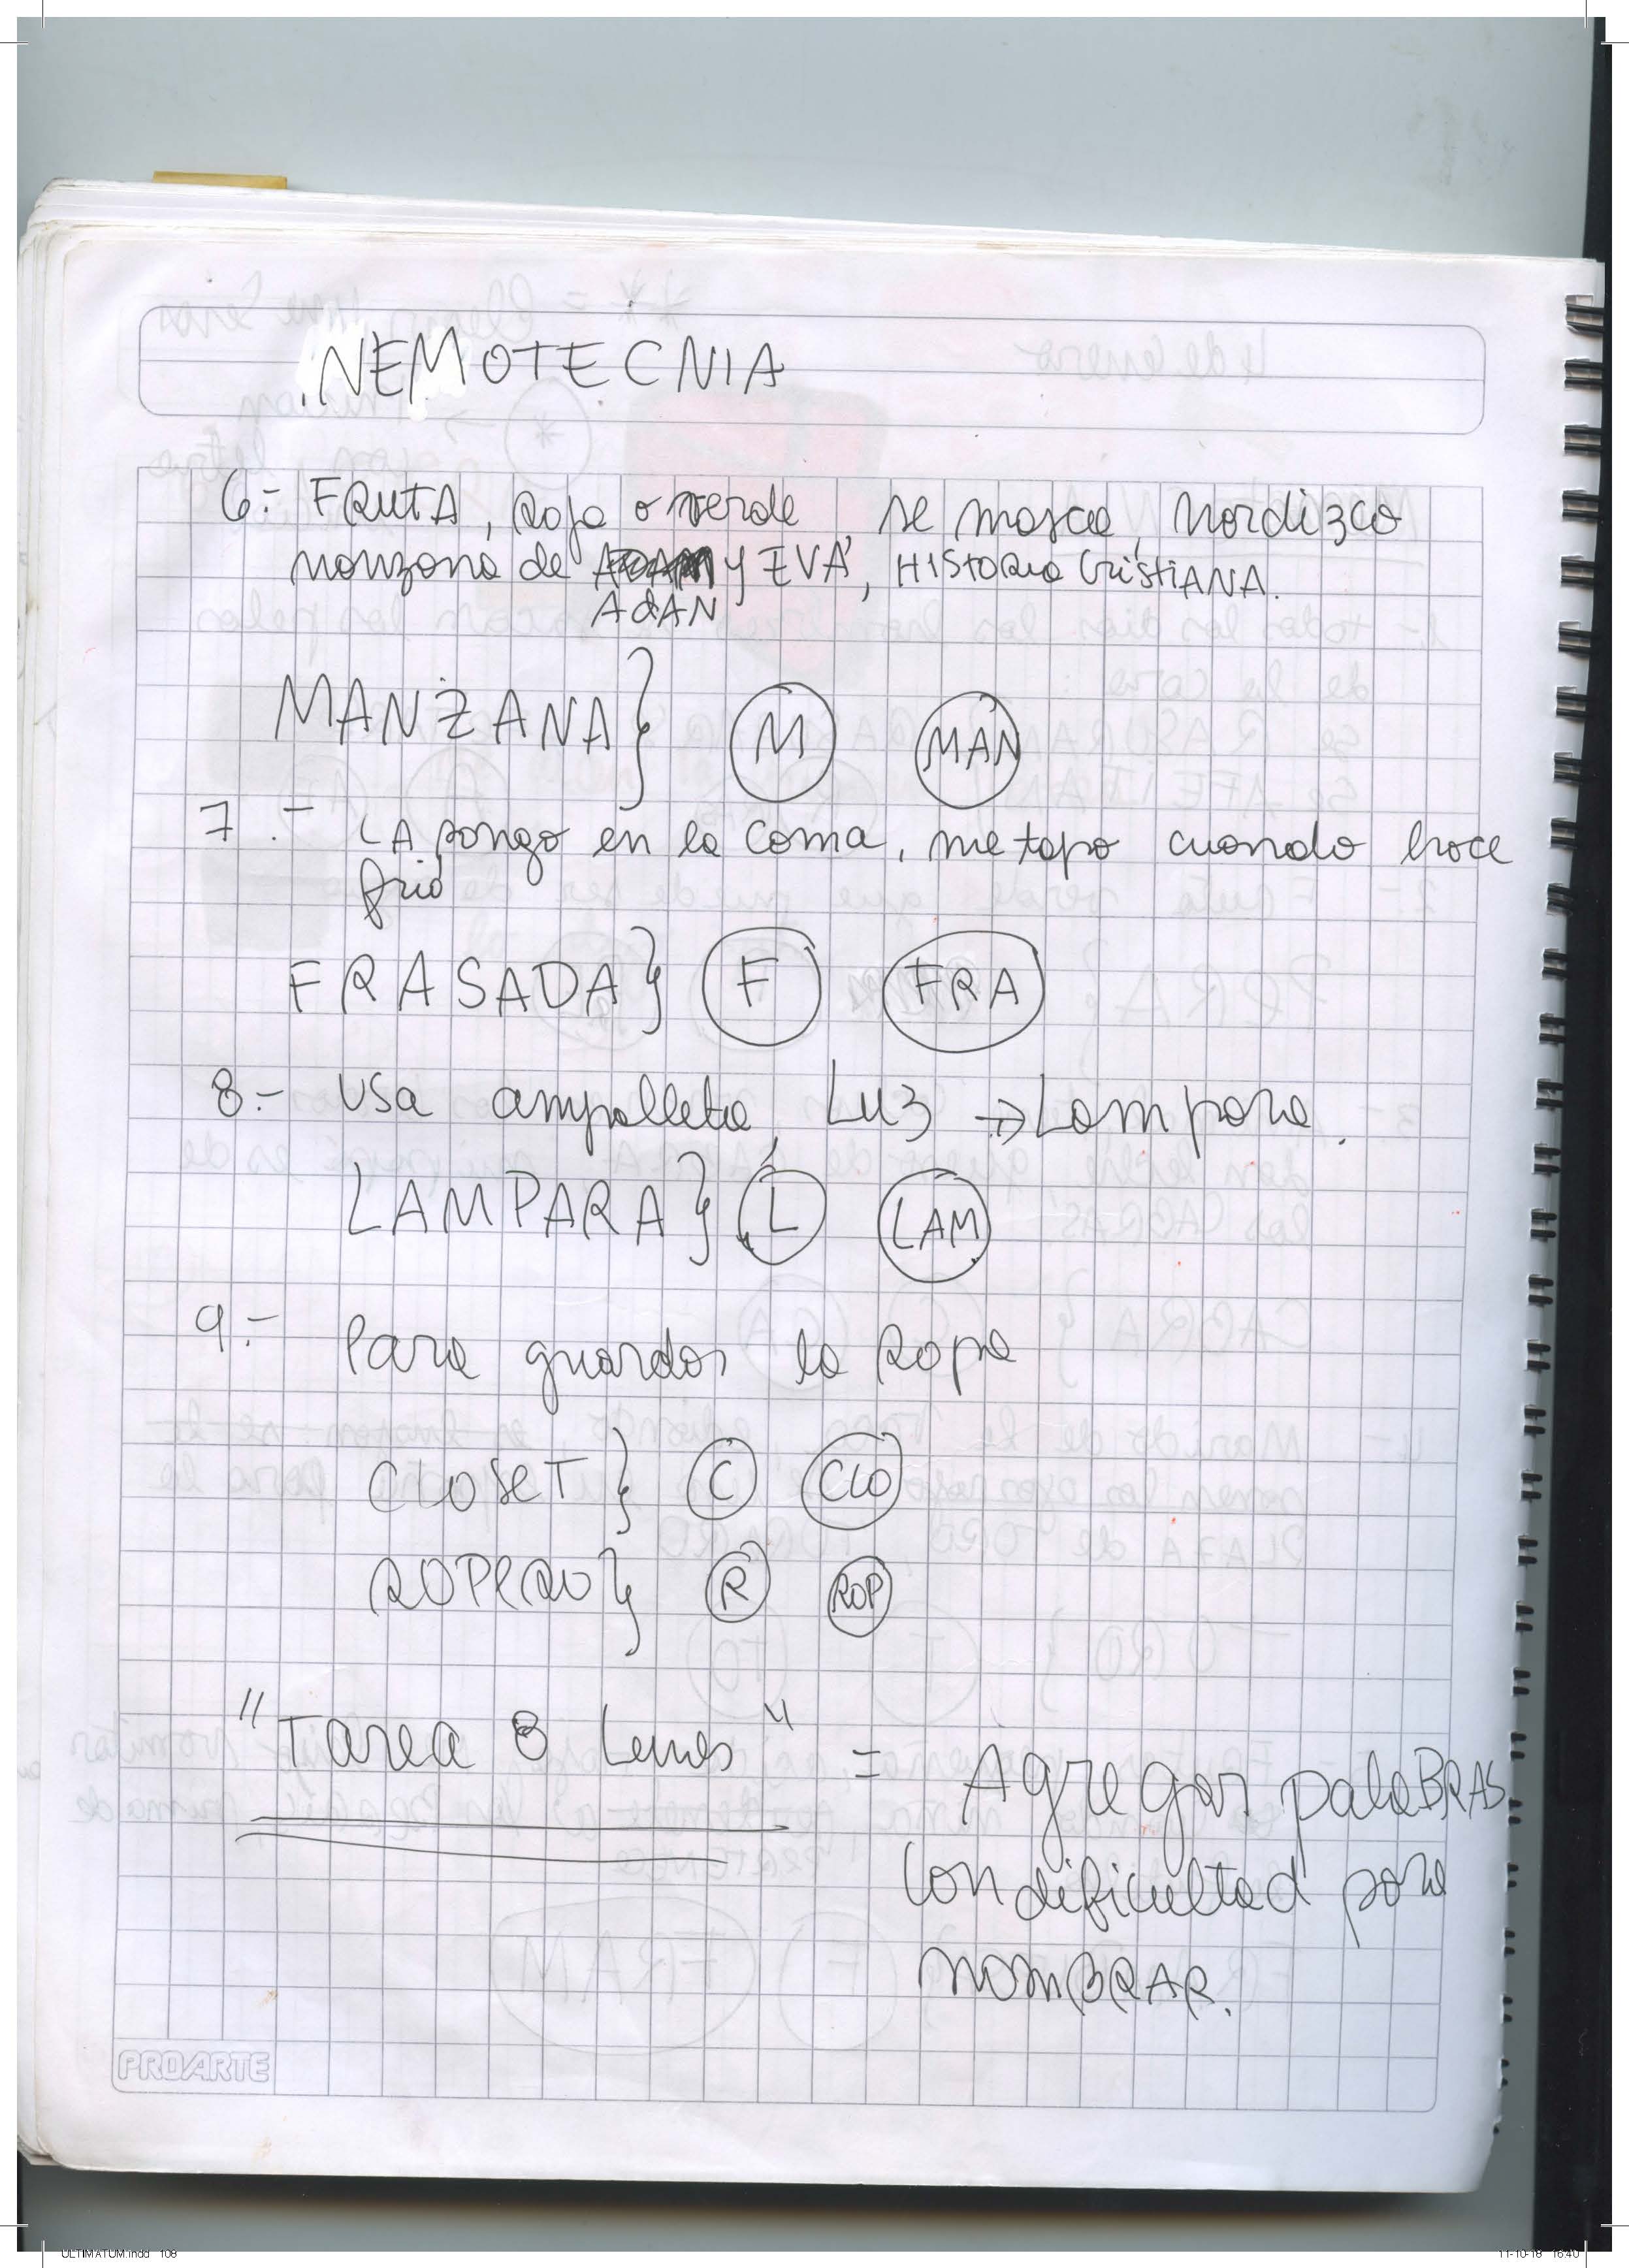 NEMOTECNIA
6.- FRUTA, Roja o verde, se masca, mordizco
manzana de ADAM y EVA, HISTORIA CristiANA.
AdAN
MANZANA} M MAN
7.- LA pongo en la cama, me tapo cuando hace
frio
FRASADA} F FRA
8.- USA ampolleta, Luz → Lampara.
LAMPARA} L LAM
9.- Para guardar la Ropa
CLOSET} C CLO
ROPERO} R ROP
"Tarea 8 Lunes" = Agregar palaBRAS
con dificultad para
NOMBRAR.
PROARTE
ULTIMATUM.indd 108
11-10-18 16:40